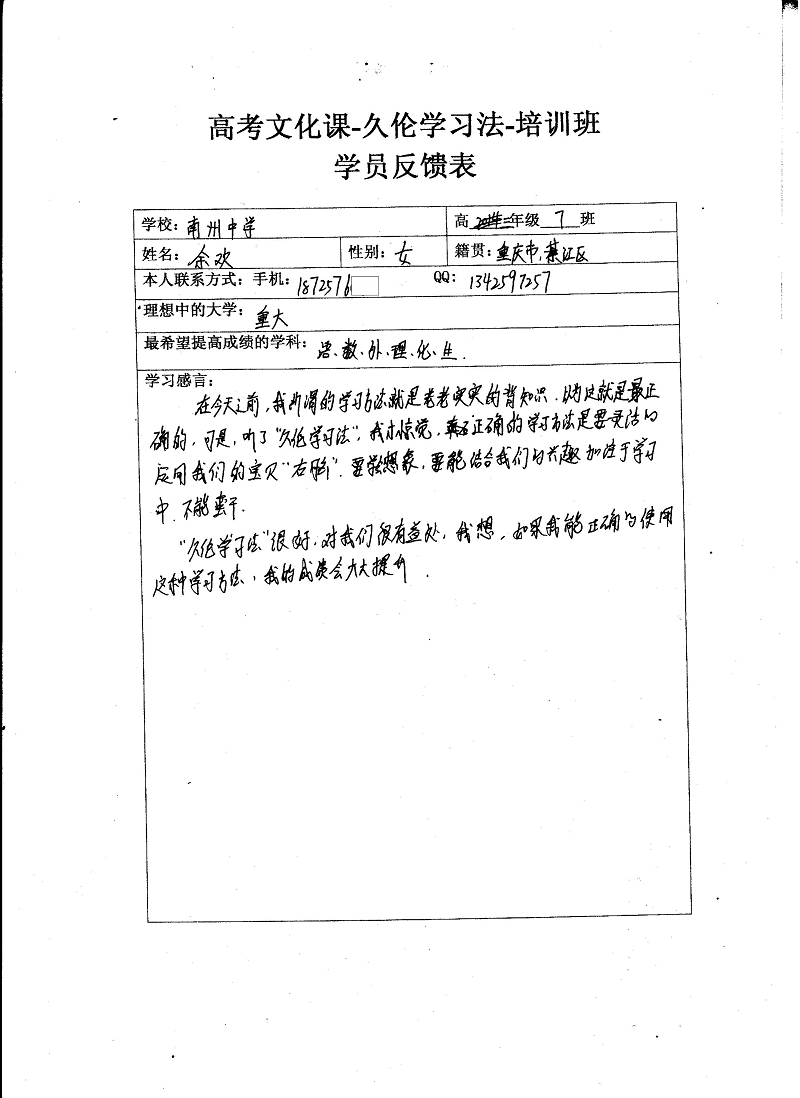 高考文化课-久伦学习法-培训班
学员反馈表
学校：南州中学 高 二年级 7 班
姓名：余欢 性别：女 籍贯：重庆市,綦江区
本人联系方式：手机：1872576 QQ：1342597257
理想中的大学：重大
最希望提高成绩的学科：语、数、外、理、化、生.
学习感言：
在今天之前，我所谓的学习方法就是老老实实的背知识.以为这就是最正
确的，可是，听了"久伦学习法"，我才惊觉，真正正确的学习方法是要灵活的
运用我们的宝贝"右脑".要学想象，要能结合我们的兴趣加注于学习
中.不能蛮干.
"久伦学习法"很好.对我们很有益处，我想，如果我能正确的使用
这种学习方法，我的成绩会大大提升.